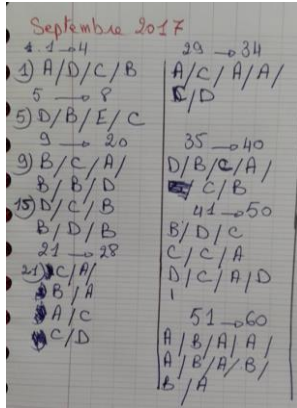 Septembre 2017
1 → 4
1) A/D/C/B
5 → 8
5) D/B/E/C
9 → 20
9) B/C/A/
B/B/D
15) D/C/B
B/D/B
21 → 28
21) C/A/
B/A
A/C
C/D
29 → 34
A/C/A/A/
C/D
35 → 40
D/B/C/A/
C/B
41 → 50
B/D/C
C/C/A
D/C/A/D
51 → 60
A/B/A/A/
A/B/A/B/
B/A